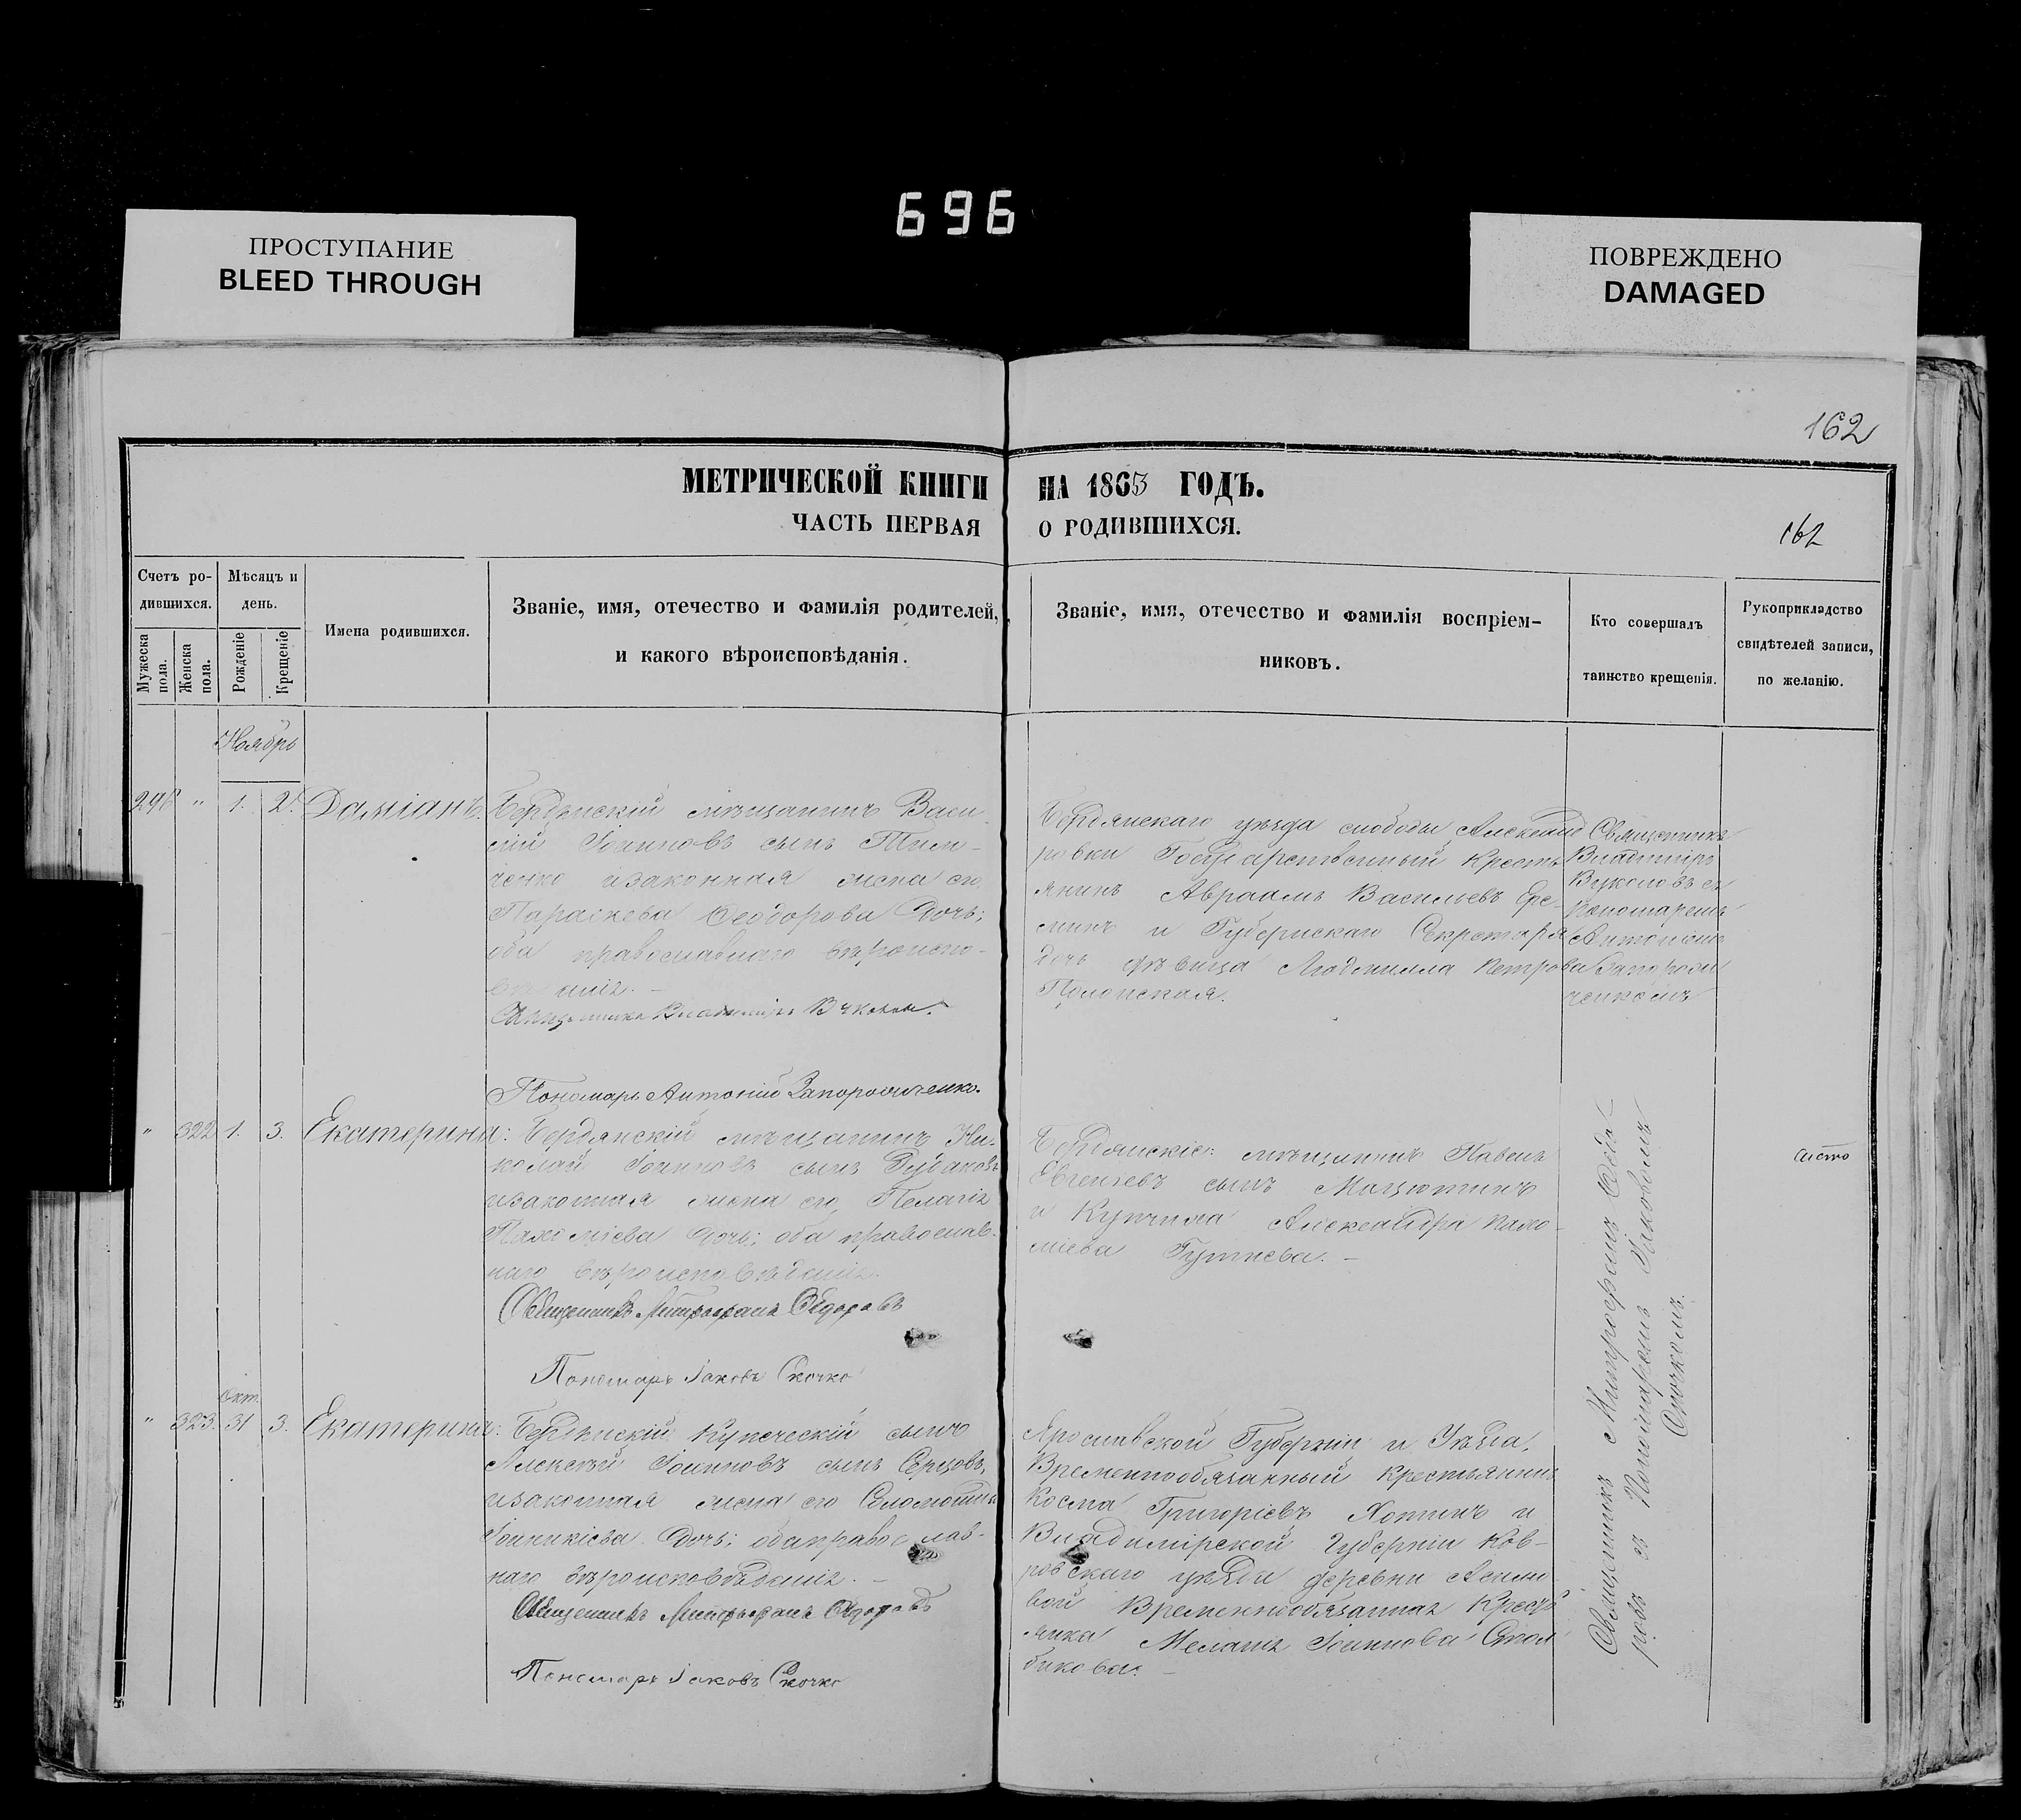 696
ПРОСТУПАНИЕ
BLEED THROUGH
ПОВРЕЖДЕНО
DAMAGED
162
МЕТРИЧЕСКОЙ КНИГИ НА 1865 ГОДЪ.
ЧАСТЬ ПЕРВАЯ О РОДИВШИХСЯ.
162
Счетъ ро-
дившихся.
Мужеска пола.
Женска пола.
Мѣсяцъ и
день.
Рожденіе
Крещеніе
Имена родившихся.
Званіе, имя, отечество и фамилія родителей,
и какого вѣроисповѣданія.
Званіе, имя, отечество и фамилія воспріем-
никовъ.
Кто совершалъ
таинство крещенія.
Рукоприкладство
свидѣтелей записи,
по желанію.
Ноябрь
298 " 1. 2. Даміанъ.
Бердянскій мѣщанинъ Васи-
лій Іоанновъ сынъ
изаконная жена его
Параскева Ѳеодорова дочь;
оба православнаго вѣроиспо-
вѣданія. –
Священникъ Владиміръ Вуколовъ.
Пономарь Антоній Запорожченко.
Бердянскаго уѣзда слободы Александ
ровки Государственный Кресть-
янинъ Авраамъ Васильевъ Ере-
минъ и Губернскаго Секретаря
дочь дѣвица Людмилла Петрова
Полонская.
Священникъ
Владиміръ
Вуколовъ съ
Пономаремъ
Антоніемъ
Запорож
ченкомъ
" 322 1. 3. Екатерина:
Бердянскій мѣщанинъ Ни-
колай Іоанновъ сынъ
изаконная жена его Пелагія
Пахоміева дочь; оба православ-
наго вѣроисповѣданія.
Священникъ Митрофанъ Ѳедоровъ
Пономарь Іаковъ Скочко
Бердянскіе: мѣщанинъ Павелъ
Евгеніевъ сынъ
и Купчиха Александра Пахо-
міева
Священникъ Митрофанъ Ѳедо-
ровъ съ Пономаремъ Іаковомъ
Скочкомъ.
Окт.
" 323. 31 3. Екатерина:
Бердянскій Купеческій сынъ
Алексѣй Іоанновъ сынъ
изаконная жена его Соломонида
Іоанникіева дочь; оба православ-
наго вѣроисповѣданія. –
Священникъ Митрофанъ Ѳедоровъ
Пономарь Іаковъ Скочко
Ярославской Губерніи и Уѣзда,
Временнообязанный крестьянинъ
Косма Григоріевъ Хотинъ и
Владимірской Губерніи Ков-
ровскаго уѣзда деревни
Временнообязанная Кресть
янка Меланія Іоаннова Стол
бикова. –